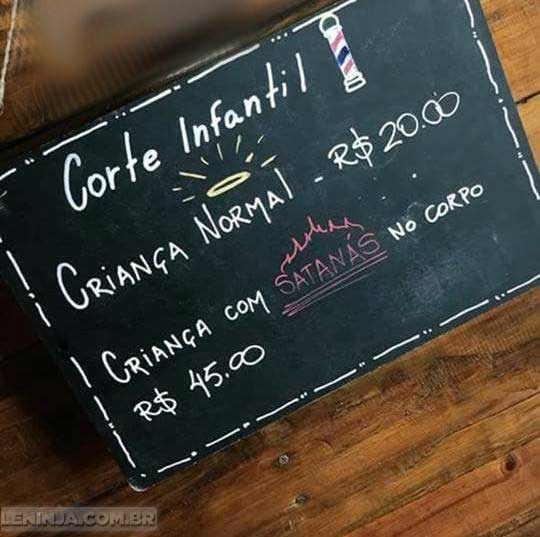 Corte Infantil
CRIANÇA NORMAl - R$ 20.00
CRIANÇA COM SATANÁS NO CORPO
R$ 45.00
LENINJA.COM.BR